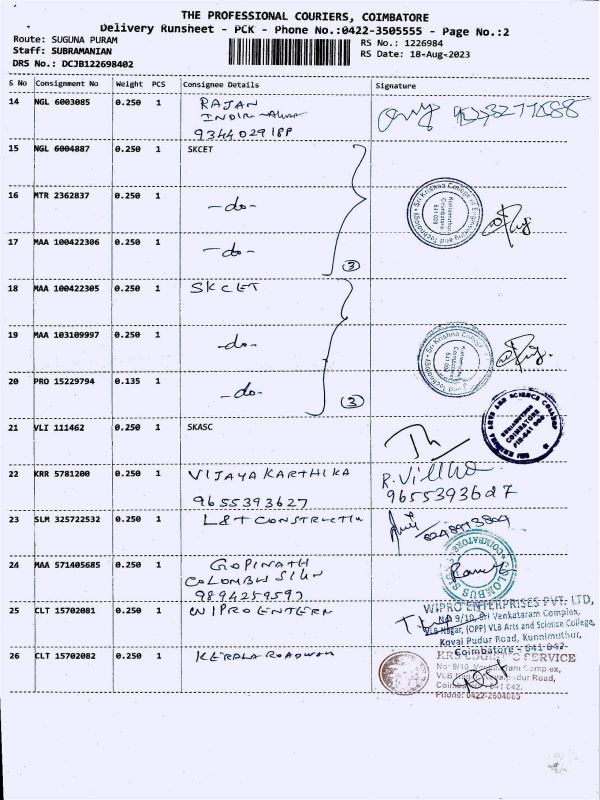 THE PROFESSIONAL COURIERS, COIMBATORE
Delivery Runsheet - PCK - Phone No.:0422-3505555 - Page No.:2
Route: SUGUNA PURAM
RS No.: 1226984
Staff: SUBRAMANIAN
RS Date: 18-Aug-2023
DRS No.: DCJB122698402
S No Consignment No Weight PCS Consignee Details Signature
14 NGL 6003085 0.250 1 RAJAN
9344029188
15 NGL 6004887 0.250 1 SKCET
16 MTR 2362837 0.250 1 -do-
17 MAA 100422306 0.250 1 -do-
3
Sri Krishna College of Engineering and Technology
Kuniamuthur
Coimbatore
641 008
18 MAA 100422305 0.250 1 SKCET
19 MAA 103109997 0.250 1 -do-
20 PRO 15229794 0.135 1 -do-
3
21 VLI 111462 0.250 1 SKASC
KRISHNA ARTS AND SCIENCE COLLEGE
COIMBATORE
22 KRR 5781200 0.250 1 VIJAYA KARTHIKA
9655393627
9655393627
23 SLM 325722532 0.250 1 L&T CONSTRUCTIN
24 MAA 571405685 0.250 1 GOPINATH
9894259597
25 CLT 15702081 0.250 1 WIPRO ENTERN
WIPRO ENTERPRISES PVT. LTD,
No 9/10, Sri Venkataram Complex,
VLB Nagar, (OPP) VLB Arts and Science College,
Kovai Pudur Road, Kunnimuthur,
Coimbatore - 641 042
26 CLT 15702082 0.250 1 KERALA ROADWAY
SERVICE
Phone: 0422-2604065